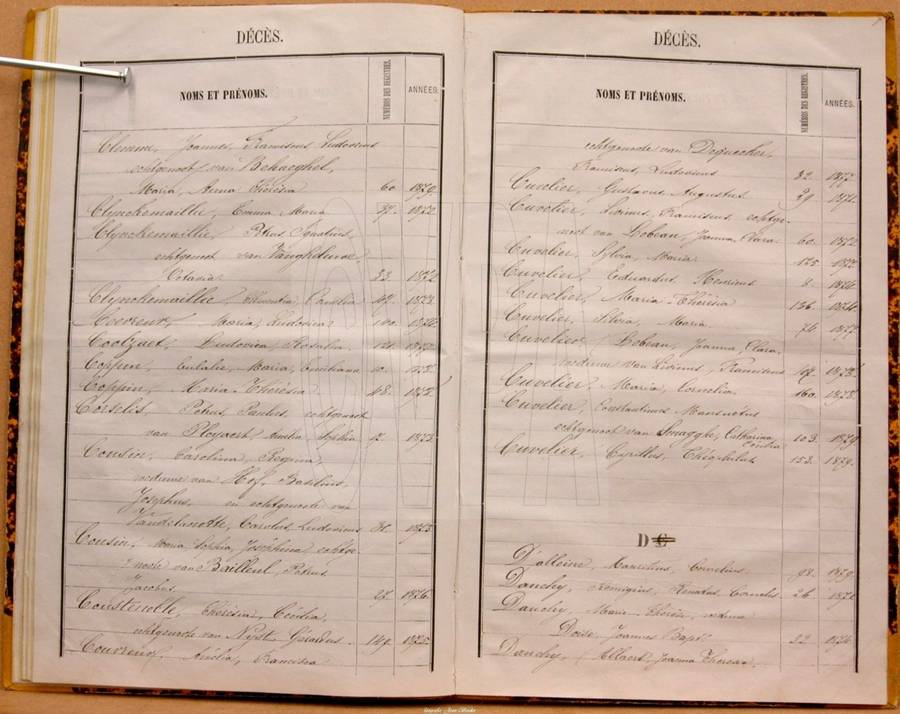 DÉCÈS.
NOMS ET PRÉNOMS.
NUMÉROS DES REGISTRES.
ANNÉES.
Clemme, Joannes, Franciscus Ludovicus
echtgenoot van Behaeghel,
Maria, Anna Theresia 60. 1879.
Clynckemaillie, Emma Maria 37. 1872.
Clynckemaillie, Petrus Ignatius,
echtgenoot van
33. 1872
Clynckemaillie, Clementia, Coralia 49. 1873.
Maria, Ludovica 100. 1874.
Coolzaet, Ludovica, Rosalia
Coppin, Eulalie, Maria, Emiliana
Coppin, Maria Theresia 48. 1873.
Corselis, Petrus Paulus, echtgenoot
van Ployaert, Amelia, Sophia 1873
Cousin, Carolina, Regina,
weduwe van Hof, Basilius,
Josephus, en echtgenoote van
Vandelanotte, Carolus Ludovicus 1873
Cousin, Maria Sophia, Josephina echtge-
noote van Bailleul, Petrus
Jacobus 27. 1876.
Coustenotte, Theresia, Cecilia,
echtgenoote van Nyst Gerardus 149. 1875
Couvreur, Amelia, Francisca
DÉCÈS.
NOMS ET PRÉNOMS.
NUMÉROS DES REGISTRES.
ANNÉES.
echtgenoote van Dequecker,
Franciscus, Ludovicus 32. 1872
Cuvelier, Gustavus Augustus 29. 1871.
Cuvelier, Livinus, Franciscus, echtge-
noot van Lobeau, Joanna, Clara 60. 1872
Cuvelier, Sylvia, Maria 125. 1872
Cuvelier, Eduardus, Henricus 8. 1874.
Cuvelier, Maria-Theresia 136. 1874.
Cuvelier, Silvia, Maria. 76. 1877
Cuvelier, Lobeau, Joanna, Clara,
weduwe van Livinus, Franciscus 1878.
Cuvelier, Maria, Cornelia 160. 1878.
Cuvelier, Constantinus, Mansuetus
echtgenoot van Smagghe, Catharina, 103. 1879
Cuvelier, Cyrillus, Théophilus 153. 1879.
D
D'alleine, Mauritius, Cornelius 98. 1879.
Dauchy, Remigius, Renatus, Cornelis 26. 1871
Dauchy, Marie-Thérèse, weduwe
Doise, Joannes Bapt. 22. 1874.
Dauchy, (Allaert, Joanna Theresia,